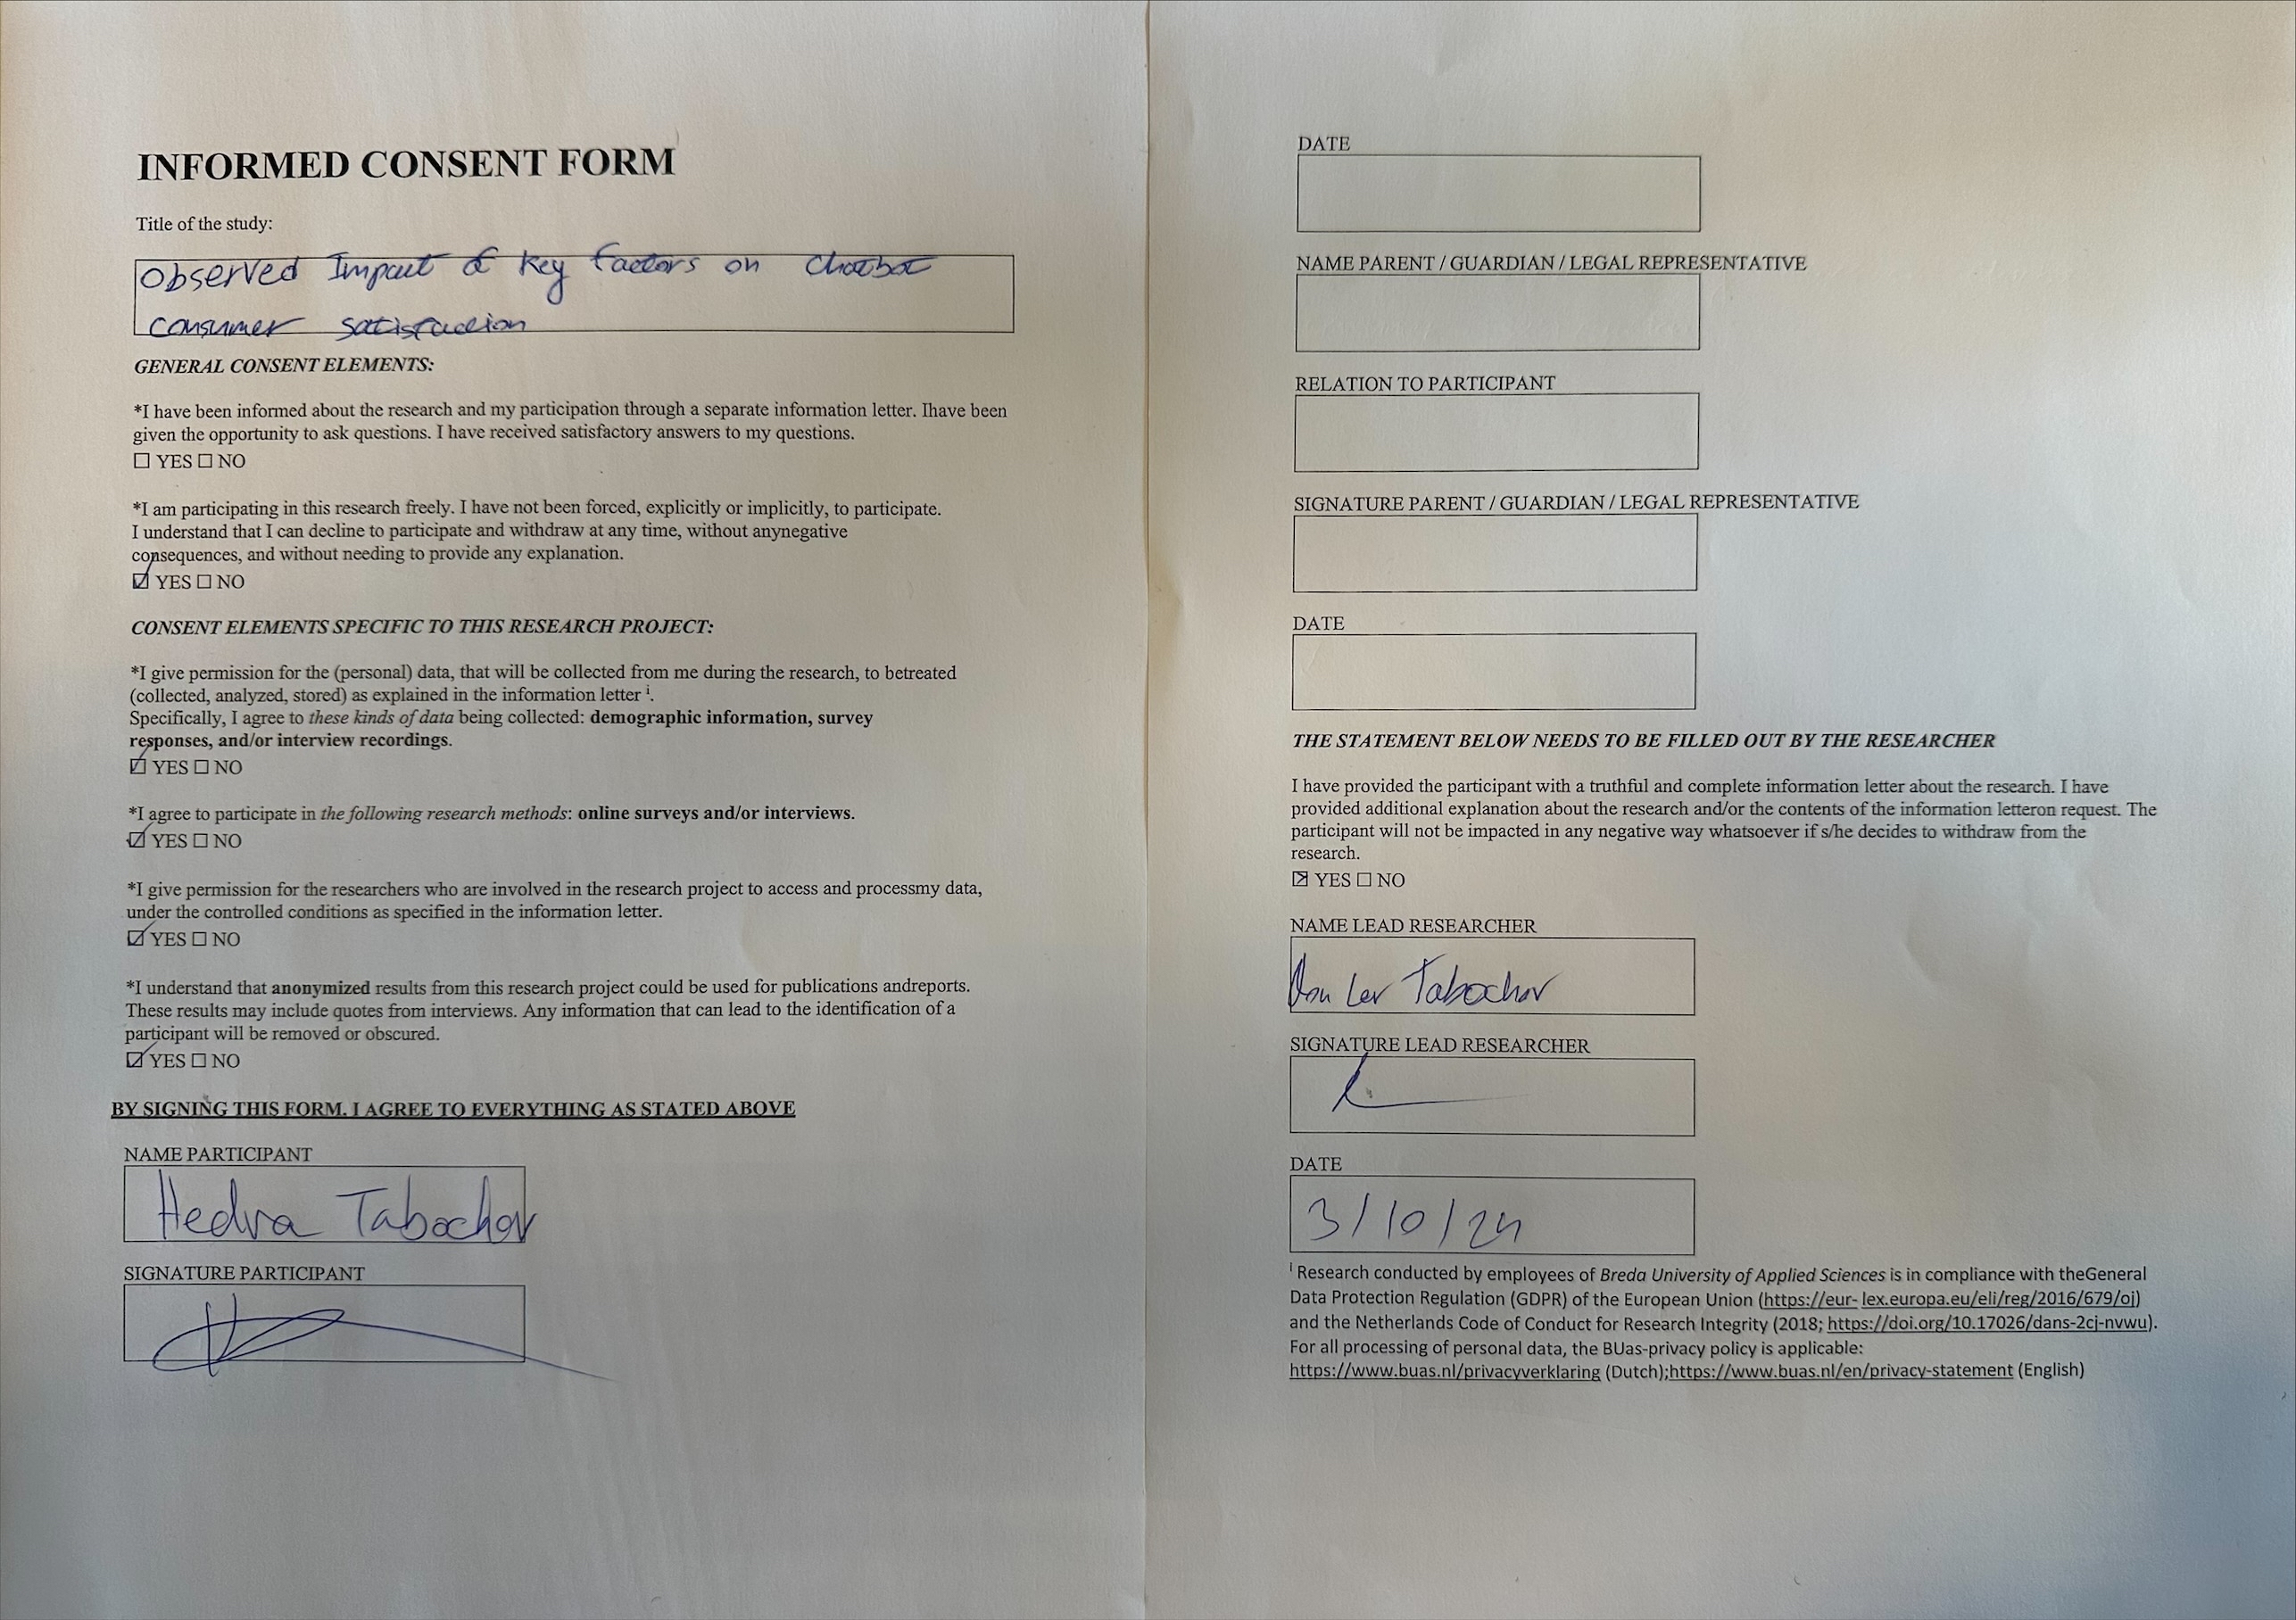 INFORMED CONSENT FORM
Title of the study:
Observed Impact of Key factors on Chatbot
consumer satisfaction
GENERAL CONSENT ELEMENTS:
*I have been informed about the research and my participation through a separate information letter. Ihave been
given the opportunity to ask questions. I have received satisfactory answers to my questions.
☐ YES ☐ NO
*I am participating in this research freely. I have not been forced, explicitly or implicitly, to participate.
I understand that I can decline to participate and withdraw at any time, without anynegative
consequences, and without needing to provide any explanation.
☑ YES ☐ NO
CONSENT ELEMENTS SPECIFIC TO THIS RESEARCH PROJECT:
*I give permission for the (personal) data, that will be collected from me during the research, to betreated
(collected, analyzed, stored) as explained in the information letter i.
Specifically, I agree to these kinds of data being collected: demographic information, survey
responses, and/or interview recordings.
☑ YES ☐ NO
*I agree to participate in the following research methods: online surveys and/or interviews.
☑ YES ☐ NO
*I give permission for the researchers who are involved in the research project to access and processmy data,
under the controlled conditions as specified in the information letter.
☑ YES ☐ NO
*I understand that anonymized results from this research project could be used for publications andreports.
These results may include quotes from interviews. Any information that can lead to the identification of a
participant will be removed or obscured.
☑ YES ☐ NO
BY SIGNING THIS FORM, I AGREE TO EVERYTHING AS STATED ABOVE
NAME PARTICIPANT
Hedva Tabochov
SIGNATURE PARTICIPANT
DATE
NAME PARENT / GUARDIAN / LEGAL REPRESENTATIVE
RELATION TO PARTICIPANT
SIGNATURE PARENT / GUARDIAN / LEGAL REPRESENTATIVE
DATE
THE STATEMENT BELOW NEEDS TO BE FILLED OUT BY THE RESEARCHER
I have provided the participant with a truthful and complete information letter about the research. I have
provided additional explanation about the research and/or the contents of the information letteron request. The
participant will not be impacted in any negative way whatsoever if s/he decides to withdraw from the
research.
☑ YES ☐ NO
NAME LEAD RESEARCHER
Lev Tabochov
SIGNATURE LEAD RESEARCHER
DATE
3/10/24
i Research conducted by employees of Breda University of Applied Sciences is in compliance with theGeneral
Data Protection Regulation (GDPR) of the European Union (https://eur- lex.europa.eu/eli/reg/2016/679/oj)
and the Netherlands Code of Conduct for Research Integrity (2018; https://doi.org/10.17026/dans-2cj-nvwu).
For all processing of personal data, the BUas-privacy policy is applicable:
https://www.buas.nl/privacyverklaring (Dutch);https://www.buas.nl/en/privacy-statement (English)